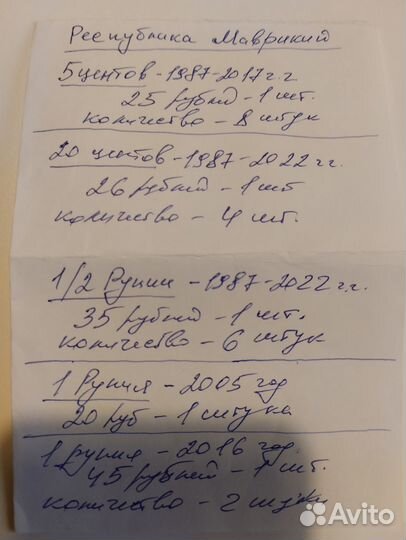 Республика Маврикий
5 центов - 1987-2017 г.г
25 рублей - 1 шт.
количество - 8 штук
20 центов - 1987-2022 гг.
26 рублей - 1 шт
количество - 4 шт.
1/2 Рупии - 1987-2022 г.г.
35 рублей - 1 шт.
количество - 6 штук
1 Рупия - 2005 год
20 руб - 1 штука
1 рупия - 2016 год.
45 рублей - 1 шт.
количество - 2 штуки
Avito